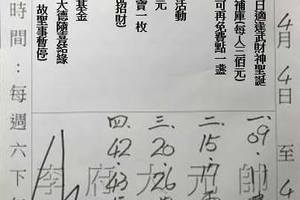 4月4日至4
日適逢武財神聖誕
補庫(每人三佰元)
可再免費點一盞
活動
元
寶一枚
招財)
基金
大德隨喜結緣
故聖事暫停
時間：每週六下
一.09
二.15.
三.20.26
四.42.43
帥
元
府
李